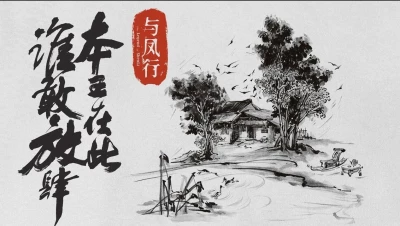 本王在此
谁敢放肆
与凤行